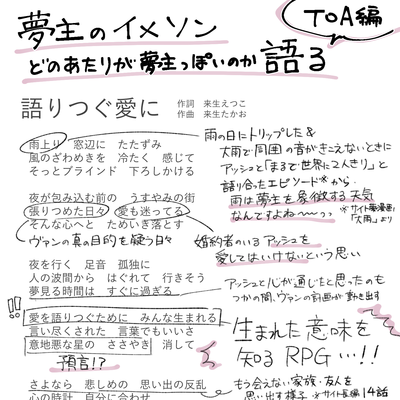 夢主のイメソン
ToA編
どのあたりが夢主っぽいのか 語る
語りつぐ愛に
作詞 来生えつこ
作曲 来生たかお
雨上り 窓辺に たたずみ
風のざわめきを 冷たく 感じて
そっとブラインド 下ろしかける
雨の日にトリップした&
大雨で周囲の音がきこえないときに
アッシュと「まるで世界に2人きり」と
語り合ったエピソード※から、
雨は夢主を象徴する天気
なんですよね〜〜っっ
※サイト掲載漫画
「大雨」より
夜が包み込む前の うすやみの街
張りつめた日々 愛も迷ってる
そんな心へと ためいき落とす
ヴァンの真の目的を疑う日々
婚約者のいるアッシュを
愛してはいけないという思い
夜を行く 足音 孤独に
人の波間から はぐれて 行きそう
夢見る時間は すぐに過ぎる
アッシュと心が通じたと思ったのも
つかの間、ヴァンの計画が動き出す
!!
愛を語りつぐために みんな生まれる
言い尽くされた 言葉でもいいさ
意地悪な星の ささやき 消して
預言!?
生まれた意味を
知るRPG…!!
さよなら 悲しめの 思い出の反乱
心の時計 自分に合わせ
もう会えない家族・友人を
思い出す様子
※サイト長編14話